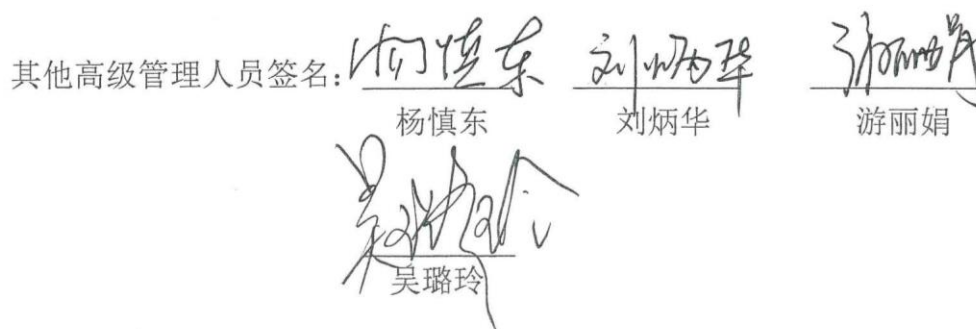 其他高级管理人员签名: 杨慎东 刘炳华 游丽娟
杨慎东 刘炳华 游丽娟
吴璐玲
吴璐玲